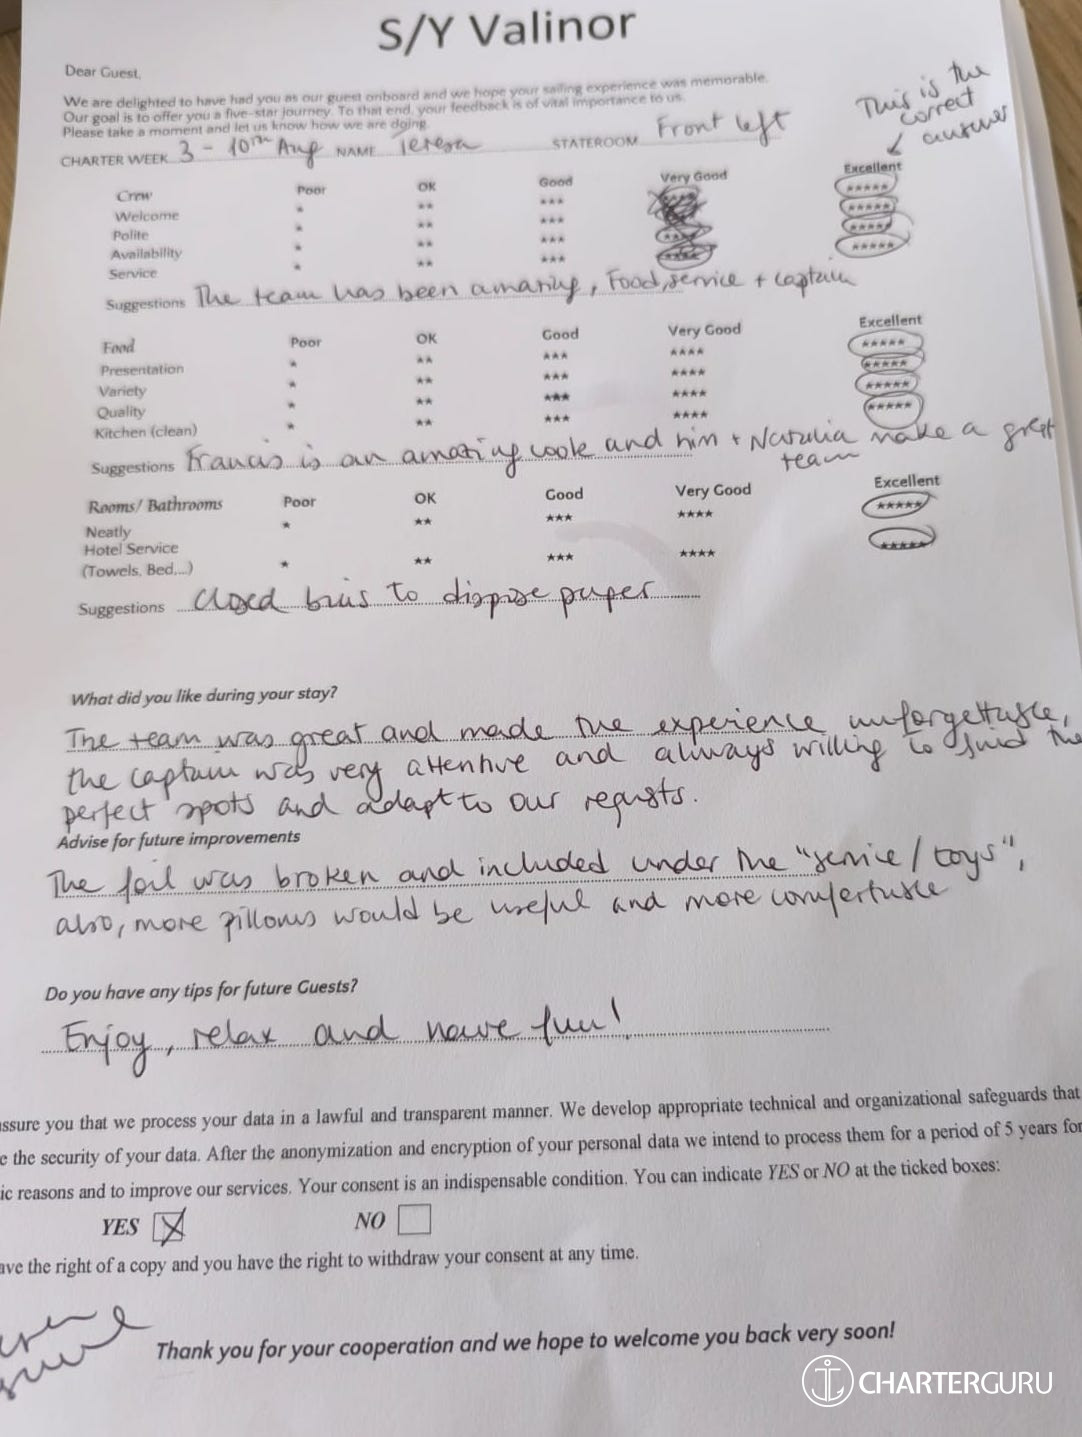 S/Y Valinor
Dear Guest,
We are delighted to have had you as our guest onboard and we hope your sailing experience was memorable.
Our goal is to offer you a five-star journey. To that end, your feedback is of vital importance to us.
Please take a moment and let us know how we are doing.
This is the
correct
answer
CHARTER WEEK 3 - 10th Aug NAME Teresa STATEROOM Front left
Crew Poor OK Good Very Good Excellent
Welcome * ** *** *****
Polite * ** *** *****
Availability * ** *** **** *****
Service * ** *** **** *****
Suggestions The team has been amazing, Food, service + captain
Food Poor OK Good Very Good Excellent
Presentation * ** *** **** *****
Variety * ** *** **** *****
Quality * ** *** **** *****
Kitchen (clean) * ** *** **** *****
Suggestions Francis is an amazing cook and him + Natalia make a great
team
Rooms/ Bathrooms Poor OK Good Very Good Excellent
Neatly * ** *** **** *****
Hotel Service
(Towels, Bed,...) * ** *** **** *****
Suggestions Closed bins to dispose paper
What did you like during your stay?
The team was great and made the experience unforgettable,
the captain was very attentive and always willing to find the
perfect spots and adapt to our requsts.
Advise for future improvements
The foil was broken and included under the "service/toys",
also, more pillows would be useful and more comfertable
Do you have any tips for future Guests?
Enjoy, relax and have fun!
assure you that we process your data in a lawful and transparent manner. We develop appropriate technical and organizational safeguards that
e the security of your data. After the anonymization and encryption of your personal data we intend to process them for a period of 5 years for
ic reasons and to improve our services. Your consent is an indispensable condition. You can indicate YES or NO at the ticked boxes:
YES X NO
ave the right of a copy and you have the right to withdraw your consent at any time.
Thank you for your cooperation and we hope to welcome you back very soon!
CHARTERGURU